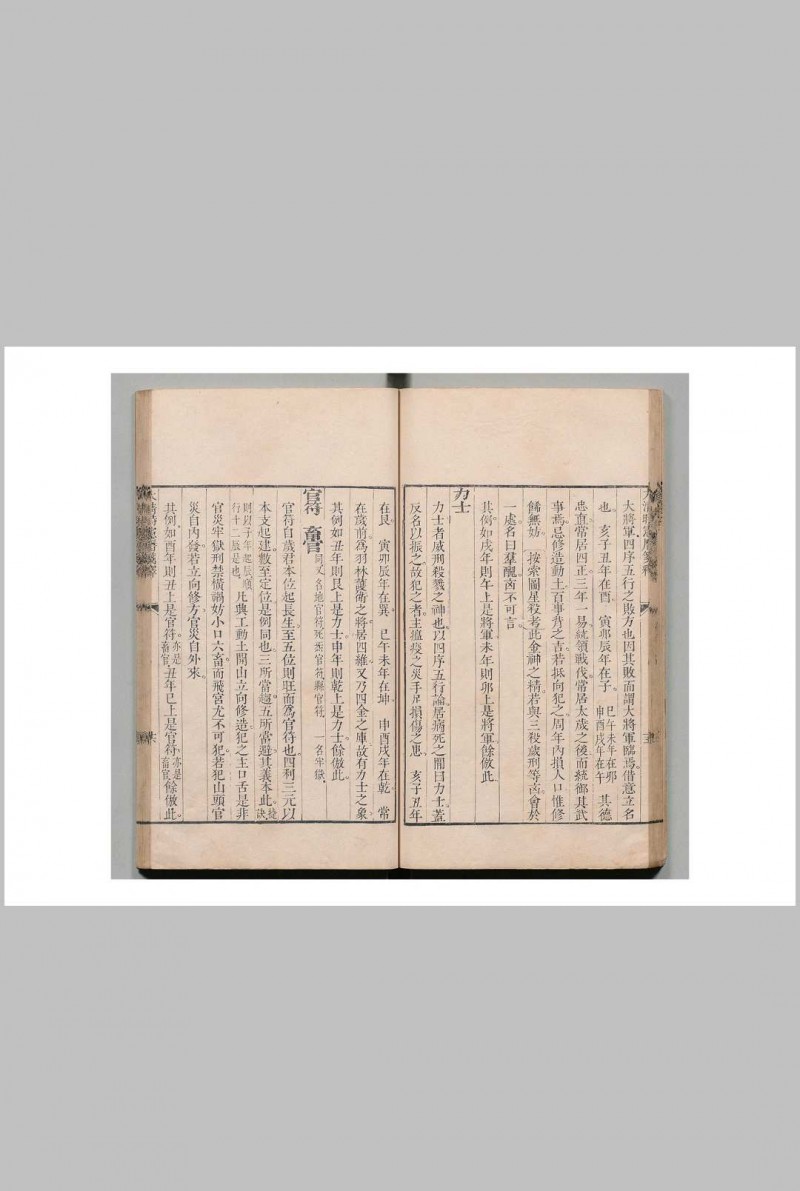 大將軍四序五行之敗方也因其敗而謂大將軍臨焉借意立名
也 亥子丑年在酉 寅卯辰年在子 巳午未年在卯 申酉戌年在午 其德
忠直常居四正三年一易統領戰伐常居太歲之後而統御其武
事焉忌修造動土百事背之吉若抵向犯之周年內損人口惟修
餙無妨 按索圖星殺考此金神之精若與三殺歲刑等凶會於
一處名曰羣醜凶不可言
其例如戌年則午上是將軍未年則卯上是將軍餘倣此
力士
力士者威刑殺戮之神也以四序五行論居病死之間曰力士蓋
反名以振之故犯之者主瘟疫之災手足損傷之患 亥子丑年
在艮 寅卯辰年在巽 巳午未年在坤 申酉戌年在乾 常
在歲前爲羽林護衛之將居四維又乃四金之庫故有力士之象
其例如丑年則艮上是力士申年則乾上是力士餘倣此
官符 畜官 同又名地官符死氣官符縣官符 一名牢獄
官符自歲君本位起長生至五位則旺而爲官符也四利三元以
本支起建數至定位是例同也三所當趨五所當避其義本此 捷訣
則以子年起辰順行十二歲是也 凡興工動土開山立向修造犯之主口舌是非
官災牢獄刑禁橫禍妨小口六畜而飛宮尤不可犯若犯山頭官
災自內發若立向修方官災自外來
其例如酉年則丑上是官符亦是畜官丑年巳上是官符亦是畜官餘倣此